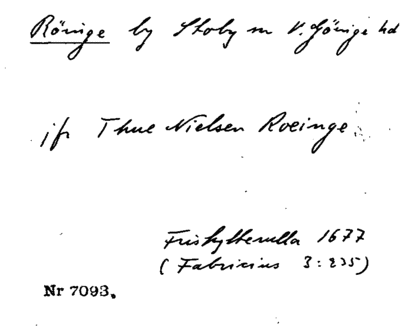 Röinge by Stoby sn V. Göinge hd
jfr Thue Nielsen Roeinge.
Friskytterulla 1677
(Fabricius 3:235)
Nr 7093.